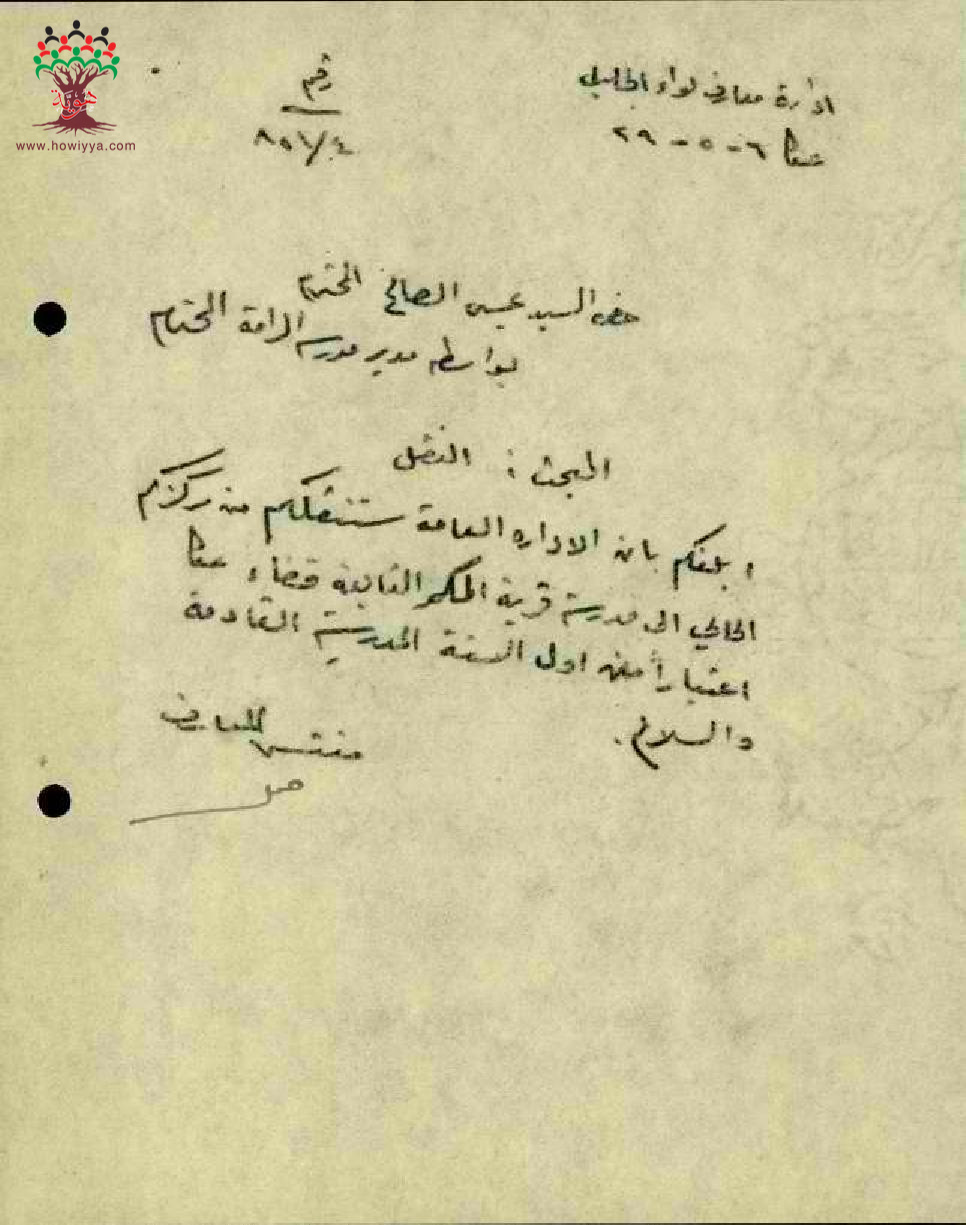 هوية
www.howiyya.com
ادارة معارف لواء الجليل
رقم
عكا ٦ - ٥ - ٢٩
٨٥٦/٤
حضرة السيد عيسى الصالح المحترم
بواسطة مدير مدرسة الرامة المحترم
المبحث : النقل
ابلغكم بان الادارة العامة ستنقلكم من مركزكم
الحالي الى مدرسة قرية المكر التابعة قضاء عكا
اعتباراً من اول السنة المدرسية القادمة
والسلام.
مفتش المعارف